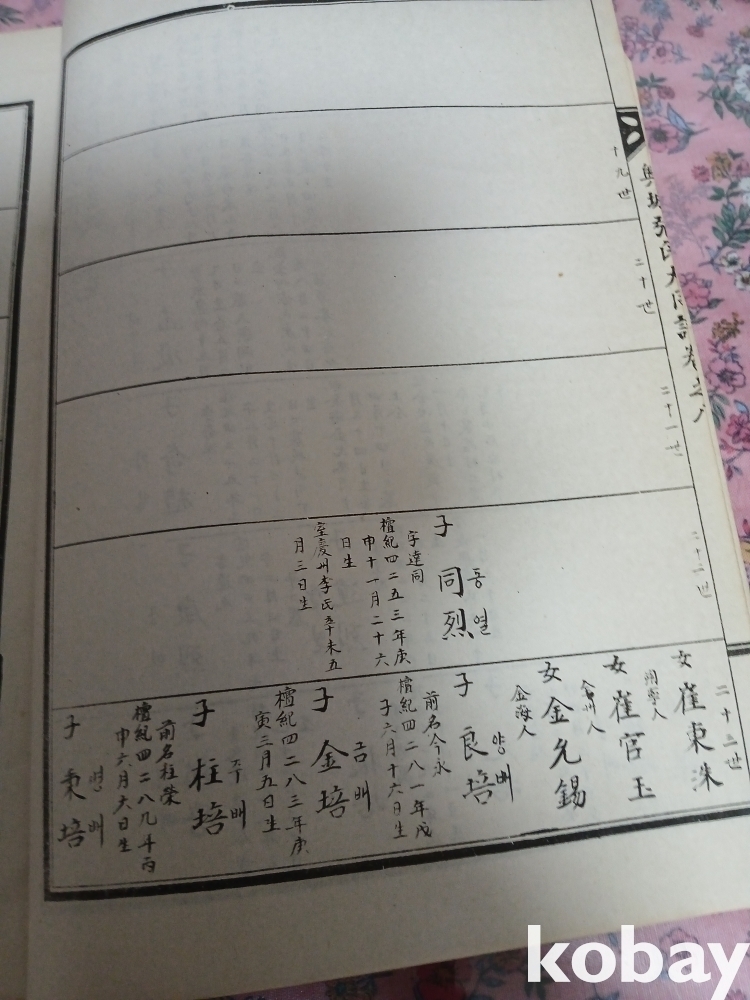 大同譜卷之八
十九世
二十世
二十一世
二十二世
子 同烈
동열
字達同
檀紀四二五三年庚
申十一月二十六
日生
室慶州李氏辛未五
月三日生
二十三世
女 崔東洙
女 崔官玉
女 金允錫
金海人
子 良培
양배
前名今永
檀紀四二八一年戊
子六月十六日生
子 金培
금배
檀紀四二八三年庚
寅三月五日生
子 柱培
주배
前名柱榮
檀紀四二八九年丙
申六月六日生
子 秉培
병배
kobay